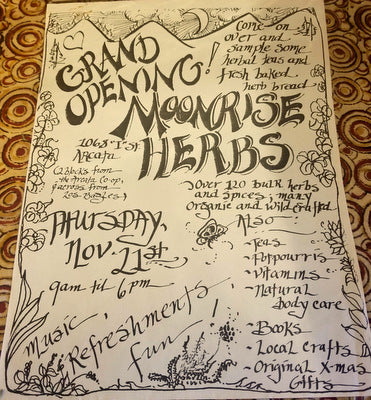 GRAND
OPENING!
Come on
over and
sample some
herbal teas and
fresh baked
herb bread
MOONRISE
HERBS
1068 "I" St
Arcata
(2 blocks from
the Arcata Co-op,
across from
Los Bagels)
Over 120 bulk herbs
and spices; many
organic and wildcrafted
THURSDAY,
Nov. 21st
9am til 6pm
Also
- Teas
- Potpourris
- Vitamins
- Natural
body care
- Books
- Local crafts
- Original X-mas
Gifts
Music,
Refreshments,
fun!